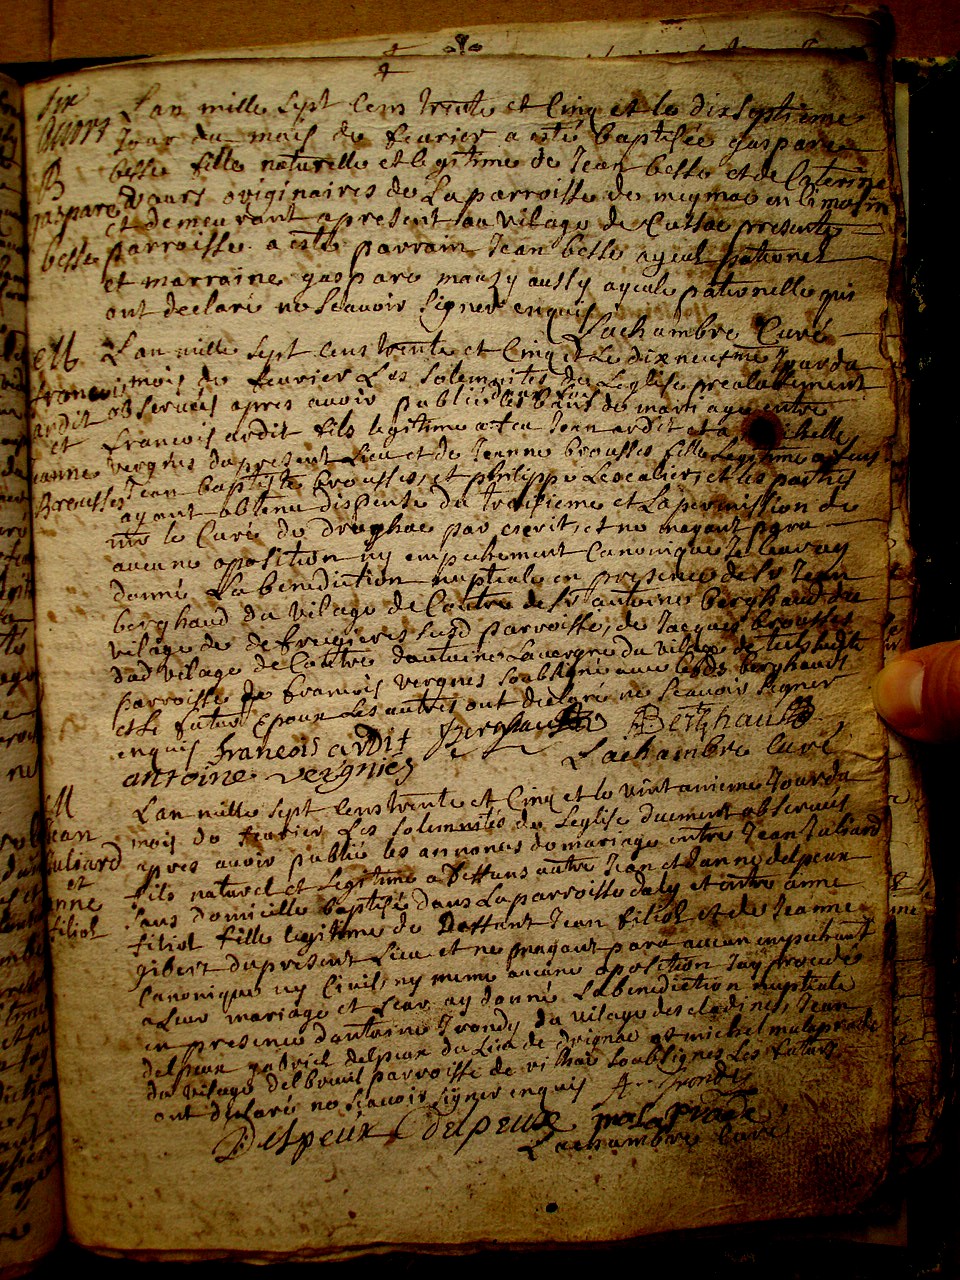 six
B
gaspare
besse
Lan mille sept Cens trente et Cinq et le dixseptieme
Jour du mois de feurier a esté baptisée gaspare
besse fille naturelle et legitime de Jean besse et de Caterine
originaires de Laparroisse de meymac en limosin
et demeurant apresent au vilage de Cussac presente
parroisse a este parrain Jean besse ayeul paternel
et marraine gaspare mauzy aussy ayeule paternelle qui
ont declaré ne scauoir signer enquis
Lachambre Curé
M
francois
ardit
et
Jeanne
Brousses
Lan mille sept Cens trente et Cinq et Le dixneufme Jour du
mois de feurier Les solemnites de Leglise prealablement
obserueés apres auoir publié les bans de mariage entre
francois ardit fils legitime a feu Jean ardit et a
vergnes du present Lieu et de Jeanne brousses fille Legitime a feus
Jean baptiste brousses, et philippe et les parties
ayant obtenu dispense du troisieme et Lapermission de
mr le Curé de drughac par escrit, et ne mayant paru
aucune oposition ny empechement Canonique Je leur ay
donné Labenediction nuptiale en presence de Sr Jean
berghaud du vilage de Contre de Sr antoine berghaud du
vilage de parroisse, de Jacques brousses
dud vilage de Contre dantoine Lauergne du vilage de
parroisse de francois vergnes soubsigné auec lesds berghauds
et le futur Epoux Les autres ont declaré ne scauoir signer
enquis francois ardit Berghaud Berghaud
antoine vergnies Lachambre Curé
M
Jean
Juliard
et
anne
filiol
Lan mille sept Cens trente et Cinq et le vintunieme Jour du
mois de feurier Les solemnites de Leglise duement obserueés
apres auoir publié les annonces de mariage entre Jean Juliard
fils naturel et legitime a Deffuns autre Jean et Janne delpeux
sans domicille baptisé dans Laparroisse daly et entre anne
filiol fille legitime de Deffunt Jean filiol et de Jeanne
gibert du present Lieu et ne mayant paru aucun empechemt
Canonique ny Ciuil, ny meme aucune oposition Jay procedé
a Leur mariage et Leur ay donné Labenediction nuptiale
en presence dantoine Trondy du vilage des cladines, Jean
delpeux gabriel delpeux du Lieu de drignac et michel malaprade
du vilage delbreuil parroisse de soubsignes Les futurs
ont declaré ne scauoir signer enquis A Trondy
Delpeux delpeux malaprade
Lachambre Curé